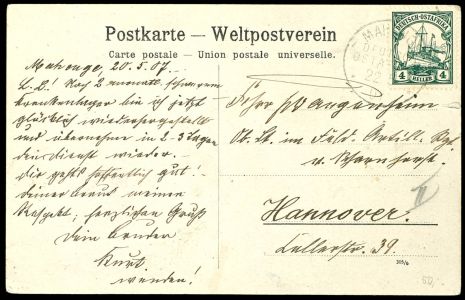 Postkarte — Weltpostverein
Carte postale — Union postale universelle.
DEUTSCH-OSTAFRIKA
4 HELLER 4
MAH
DEUT
OSTA
22
Mahenge, 20.5.07.
L. D.! Nach 2 monatl. schwerem
Krankenlager bin ich jetzt
glücklich wiederhergestellt
und übernehme in 2-3 Tagen
den Dienst wieder.
Dir geht's hoffentlich gut!
Deiner Braut meinen
Respekt; herzlichen Gruß
Dein Bruder
Kurt
wenden!
Frhr. v. Wangenheim
Ob. Lt. im Feld. Artill. Rgt.
v. Scharnhorst.
II
Hannover.
39.